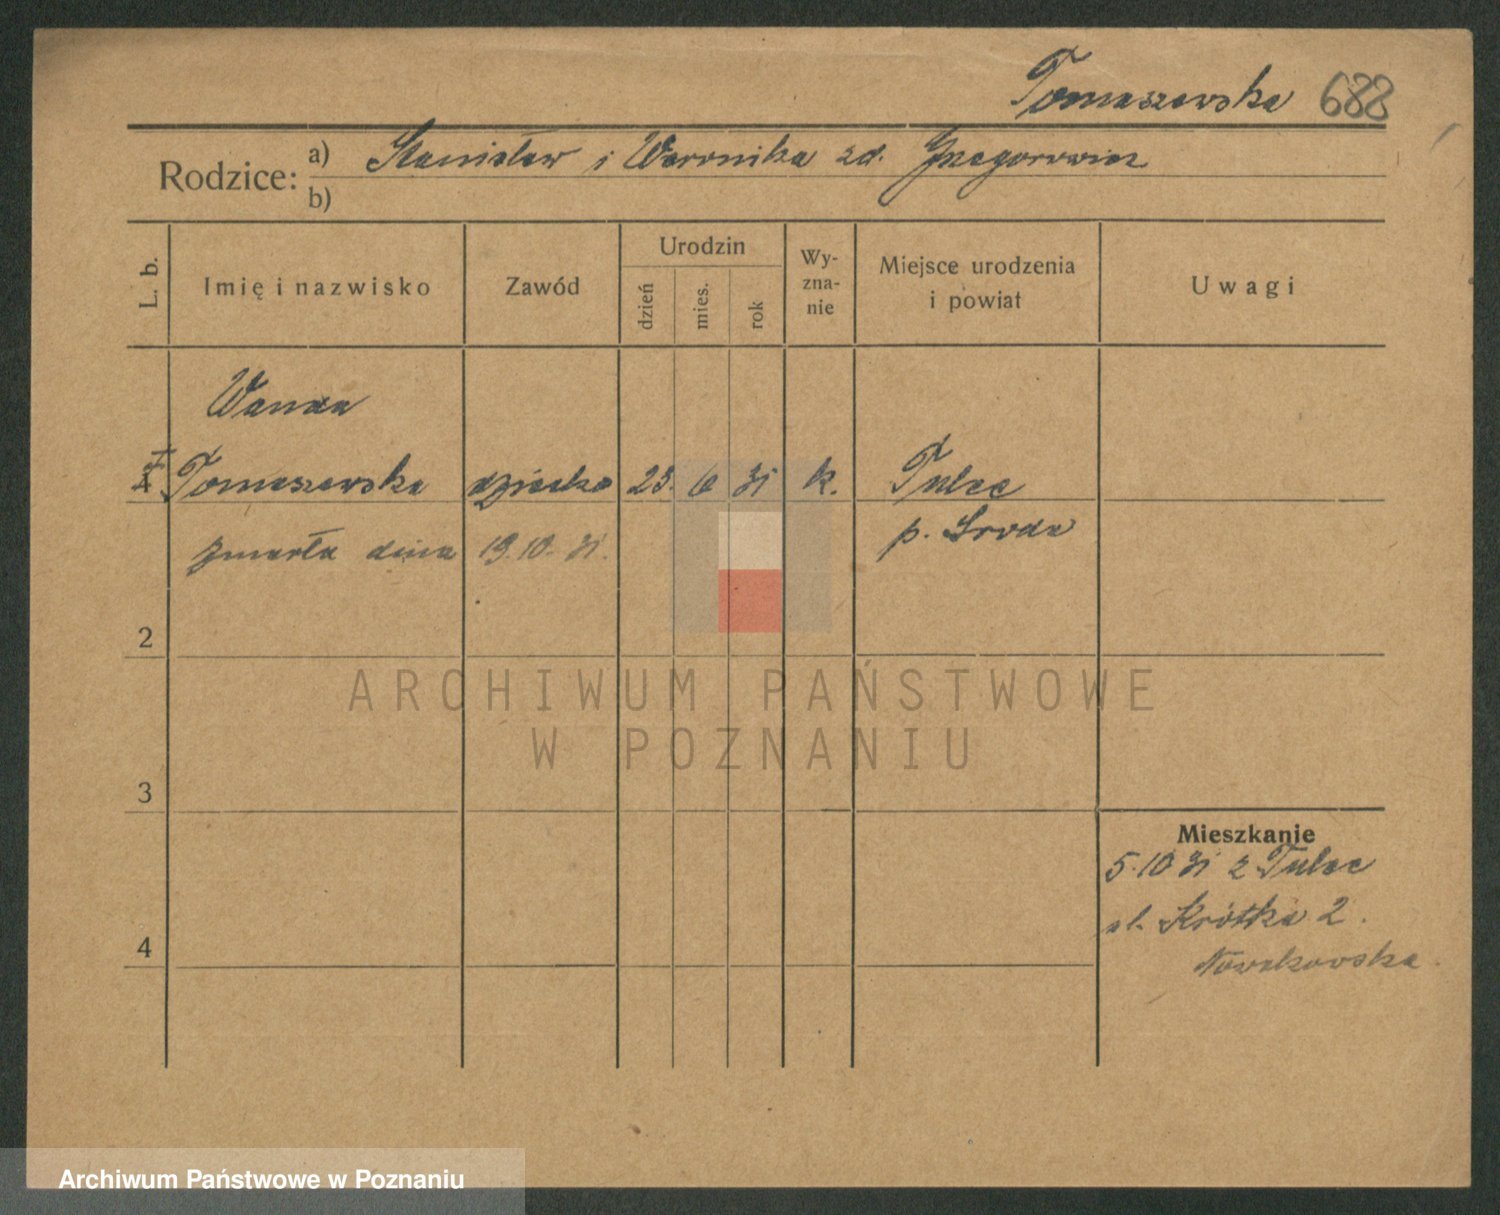 Tomaszewska 688
Rodzice: a) Stanisław i Weronika zd. Grzegorowicz
b)
L. b. Imię i nazwisko Zawód Urodzin dzień mies. rok Wy-zna-nie Miejsce urodzenia i powiat Uwagi
Wanda
1 Tomaszewska dziecko 23. 6 31 k. Tulce
zmarła dnia 19.10.31. p. Środa
2
ARCHIWUM PAŃSTWOWE
W POZNANIU
3
Mieszkanie
5.10 31 z Tulce
ul. Krótka 2.
4
Nowakowska.
Archiwum Państwowe w Poznaniu